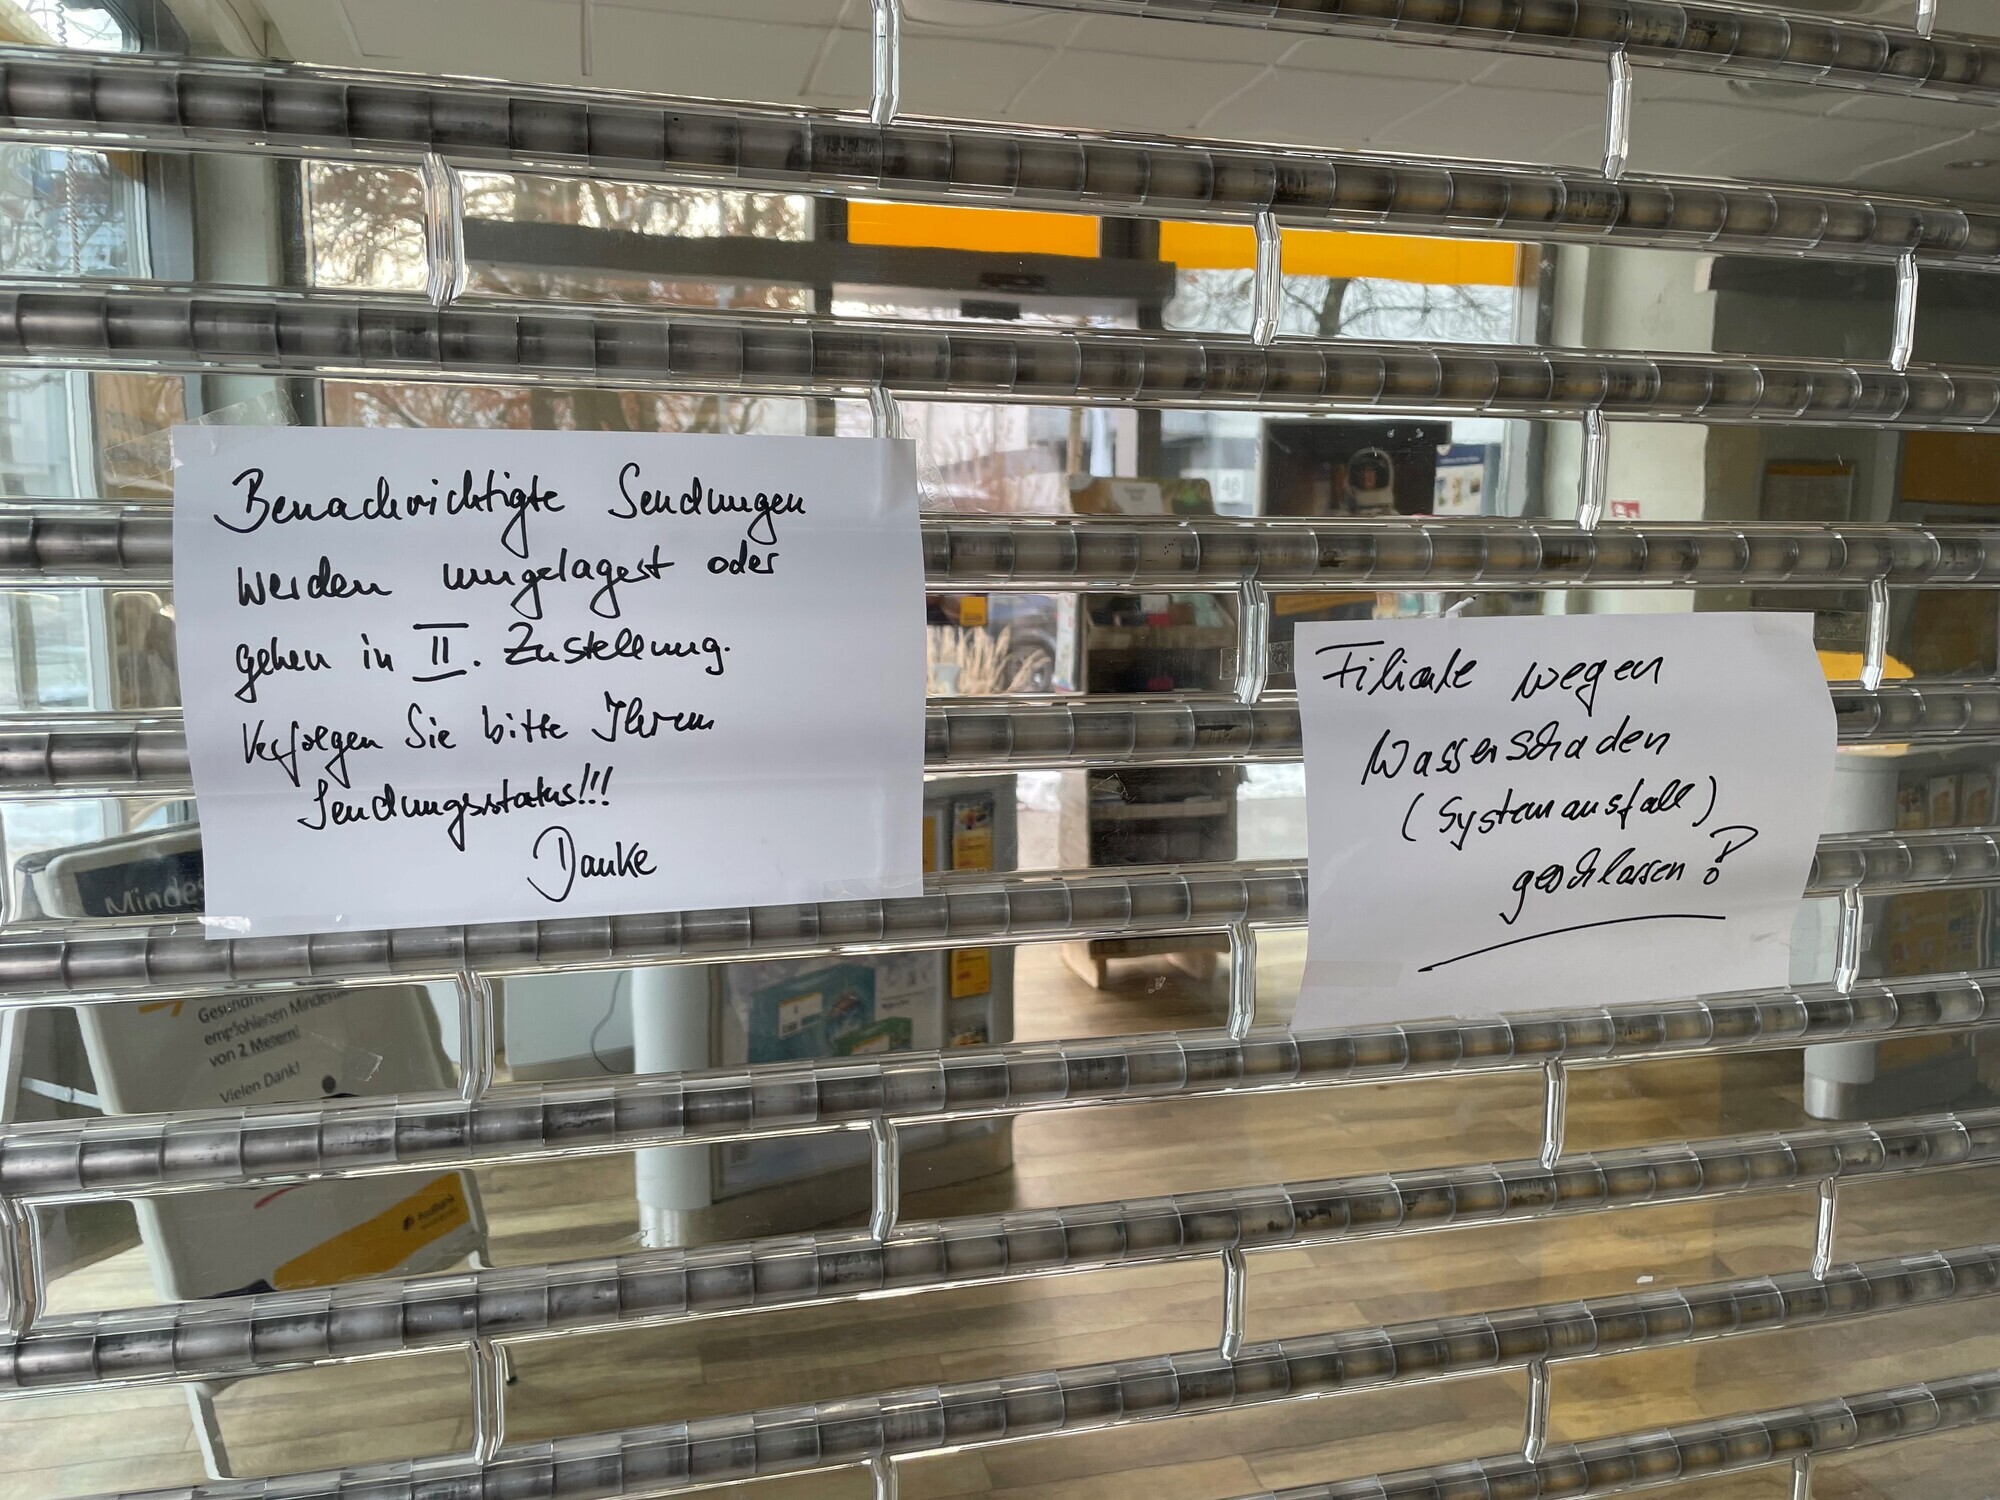 Benachrichtigte Sendungen
werden umgelagert oder
gehen in II. Zustellung.
Verfolgen Sie bitte Ihren
Sendungsstatus!!!
Danke
Filiale wegen
Wasserschaden
(Systemausfall)
geschlossen!
Mindes
empfohlenen Mindest
von 2 Metern!
Vielen Dank!
Postbank
46